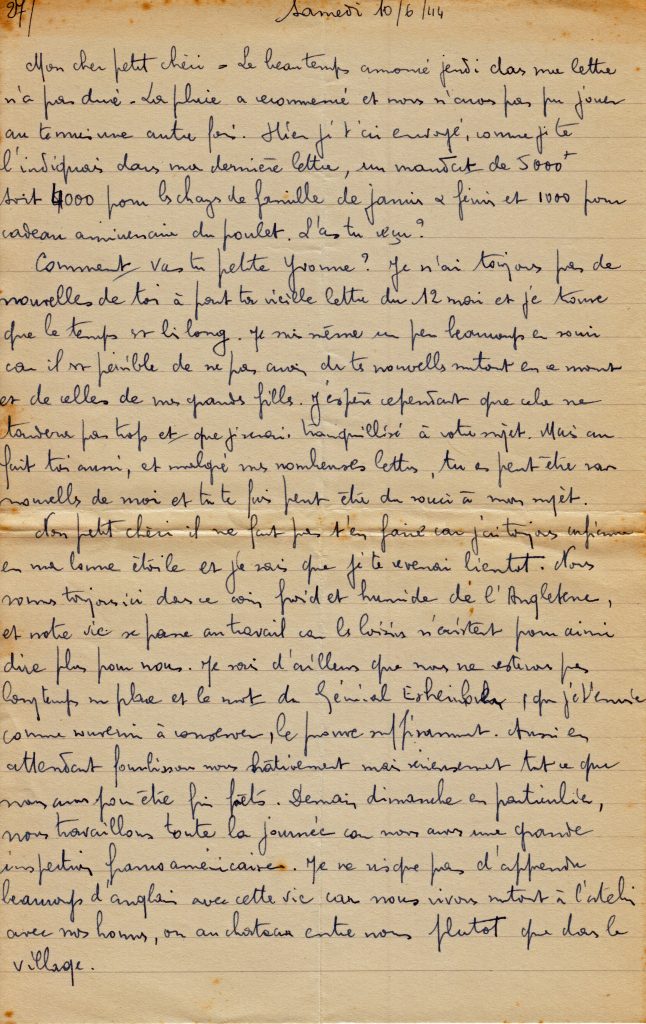 27/ Samedi 10/6/44
Mon cher petit chéri = Le beau temps annoncé jeudi dans ma lettre
n'a pas duré - La pluie a recommencé et nous n'avons pas pu jouer
au tennis une autre fois. Hier je t'ai envoyé, comme je te
l'indiquais dans ma dernière lettre, un mandat de 5000
soit 4000 pour les charges de famille de janvier & février et 1000 pour
cadeau anniversaire du poulet. L'as tu reçu?
Comment vas tu petite Yvonne? Je n'ai toujours pas de
nouvelles de toi à part ta vieille lettre du 12 mai et je trouve
que le temps est bi long. Je suis même un peu beaucoup en souci
car il est pénible de ne pas avoir de tes nouvelles surtout en ce moment
et de celles de mes grands filles. J'espère cependant que cela ne
tardera pas trop et que je serai tranquillisé à votre sujet. Mais au
fait toi aussi, et malgré mes nombreuses lettres, tu es peut être sans
nouvelles de moi et tu te fais peut être du souci à mon sujet.
Non petit chéri il ne faut pas t'en faire car j'ai toujours confiance
en ma bonne étoile et je sais que je te reverrai bientot. Nous
sommes toujours ici dans ce coin froid et humide de l'Angleterre,
et notre vie se passe au travail car les loisirs n'existent pour ainsi
dire plus pour nous. Je sais d'ailleurs que nous ne resterons pas
longtemps sur place et le mot du Général, que je t'envoie
comme souvenir à conserver, le prouve suffisamment. Aussi en
attendant fourbissons nous hâtivement mais sérieusement tout ce que
nous avons pour être fin prêts. Demain dimanche en particulier,
nous travaillons toute la journée car nous avons une grande
inspection francoaméricaine. Je ne risque pas d'apprendre
beaucoup d'anglais avec cette vie car nous vivons surtout à l'atelier
avec nos hommes, ou au chateau entre nous plutot que dans le
village.